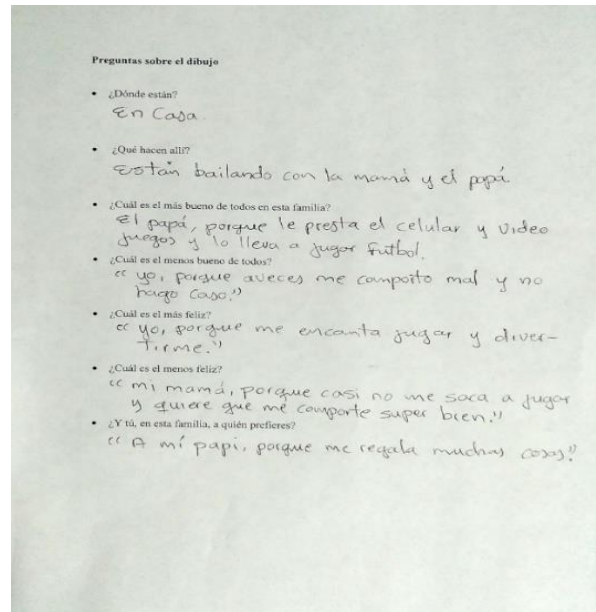 Preguntas sobre el dibujo
• ¿Dónde están?
En Casa.
• ¿Qué hacen allí?
Están bailando con la mamá y el papá.
• ¿Cuál es el más bueno de todos en esta familia?
El papá, porque le presta el celular y video
juegos y lo lleva a jugar futbol.
• ¿Cuál es el menos bueno de todos?
“yo, porque aveces me comporto mal y no
hago caso.”
• ¿Cuál es el más feliz?
“yo, porque me encanta jugar y diver-
tirme.”
• ¿Cuál es el menos feliz?
“mi mamá, porque casi no me saca a jugar
y quiere que me comporte super bien.”
• ¿Y tú, en esta familia, a quién prefieres?
“A mi papi, porque me regala muchas cosas”